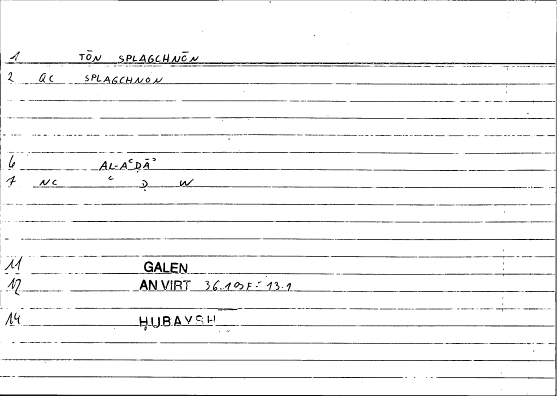 1 TŌN SPLAGCHNŌN
2 QC SPLAGCHNON
6 AL-AʿḌĀʾ
7 NC ʿ Ḍ W
11 GALEN
12 AN VIRT
14 ḤUBAYSH